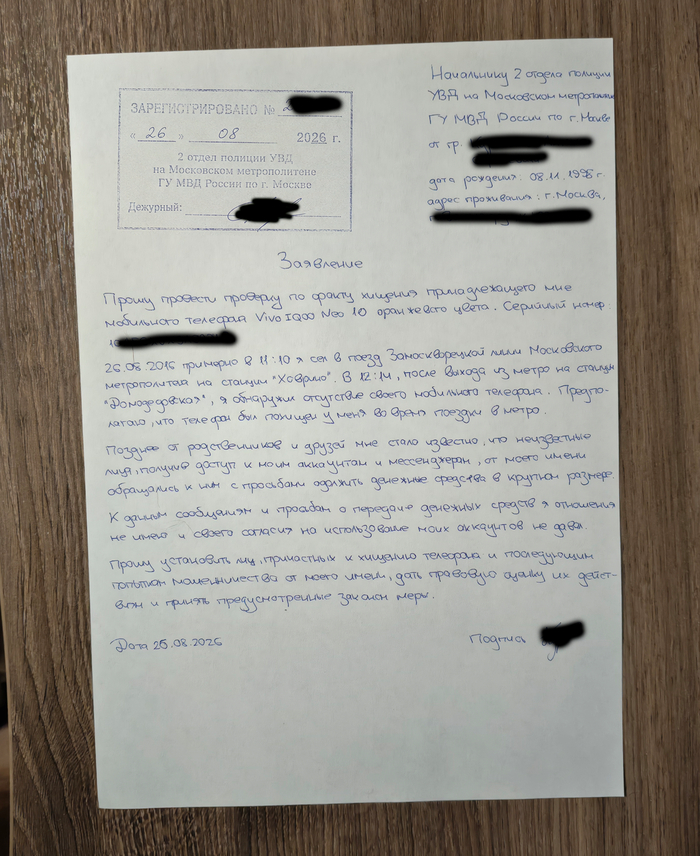 ЗАРЕГИСТРИРОВАНО №
« 26 » 08 2026 г.
2 отдел полиции УВД
на Московском метрополитене
ГУ МВД России по г. Москве
Дежурный:
Начальнику 2 отдела полиции
УВД на Московском метрополитене
ГУ МВД России по г. Москве
от гр.
дата рождения: 08.11.1998 г.
адрес проживания: г. Москва,
Заявление
Прошу провести проверку по факту хищения принадлежащего мне
мобильного телефона Vivo IQOO Neo 10 оранжевого цвета. Серийный номер
26.08.2016 примерно в 11:10 я сел в поезд Замоскворецкой линии Московского
метрополитена на станции "Ховрино". В 12:14, после выхода из метро на станции
"Домодедовская", я обнаружил отсутствие своего мобильного телефона. Предпо-
лагаю, что телефон был похищен у меня во время поездки в метро.
Позднее от родственников и друзей мне стало известно, что неизвестные
лица, получив доступ к моим аккаунтам и мессенджерам, от моего имени
обращались к ним с просьбами одолжить денежные средства в крупном размере.
К данным сообщениям и просьбам о передаче денежных средств я отношения
не имею и своего согласия на использование моих аккаунтов не давал.
Прошу установить лиц, причастных к хищению телефона и последующим
попыткам мошенничества от моего имени, дать правовую оценку их дейст-
виям и принять предусмотренные законом меры.
Дата 26.08.2026 Подпись